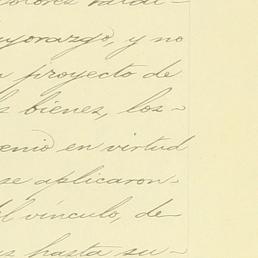 mayorazgo, y no
proyecto de
bienes, los-
en virtud
se aplicaron-
vínculo, de
hasta su-